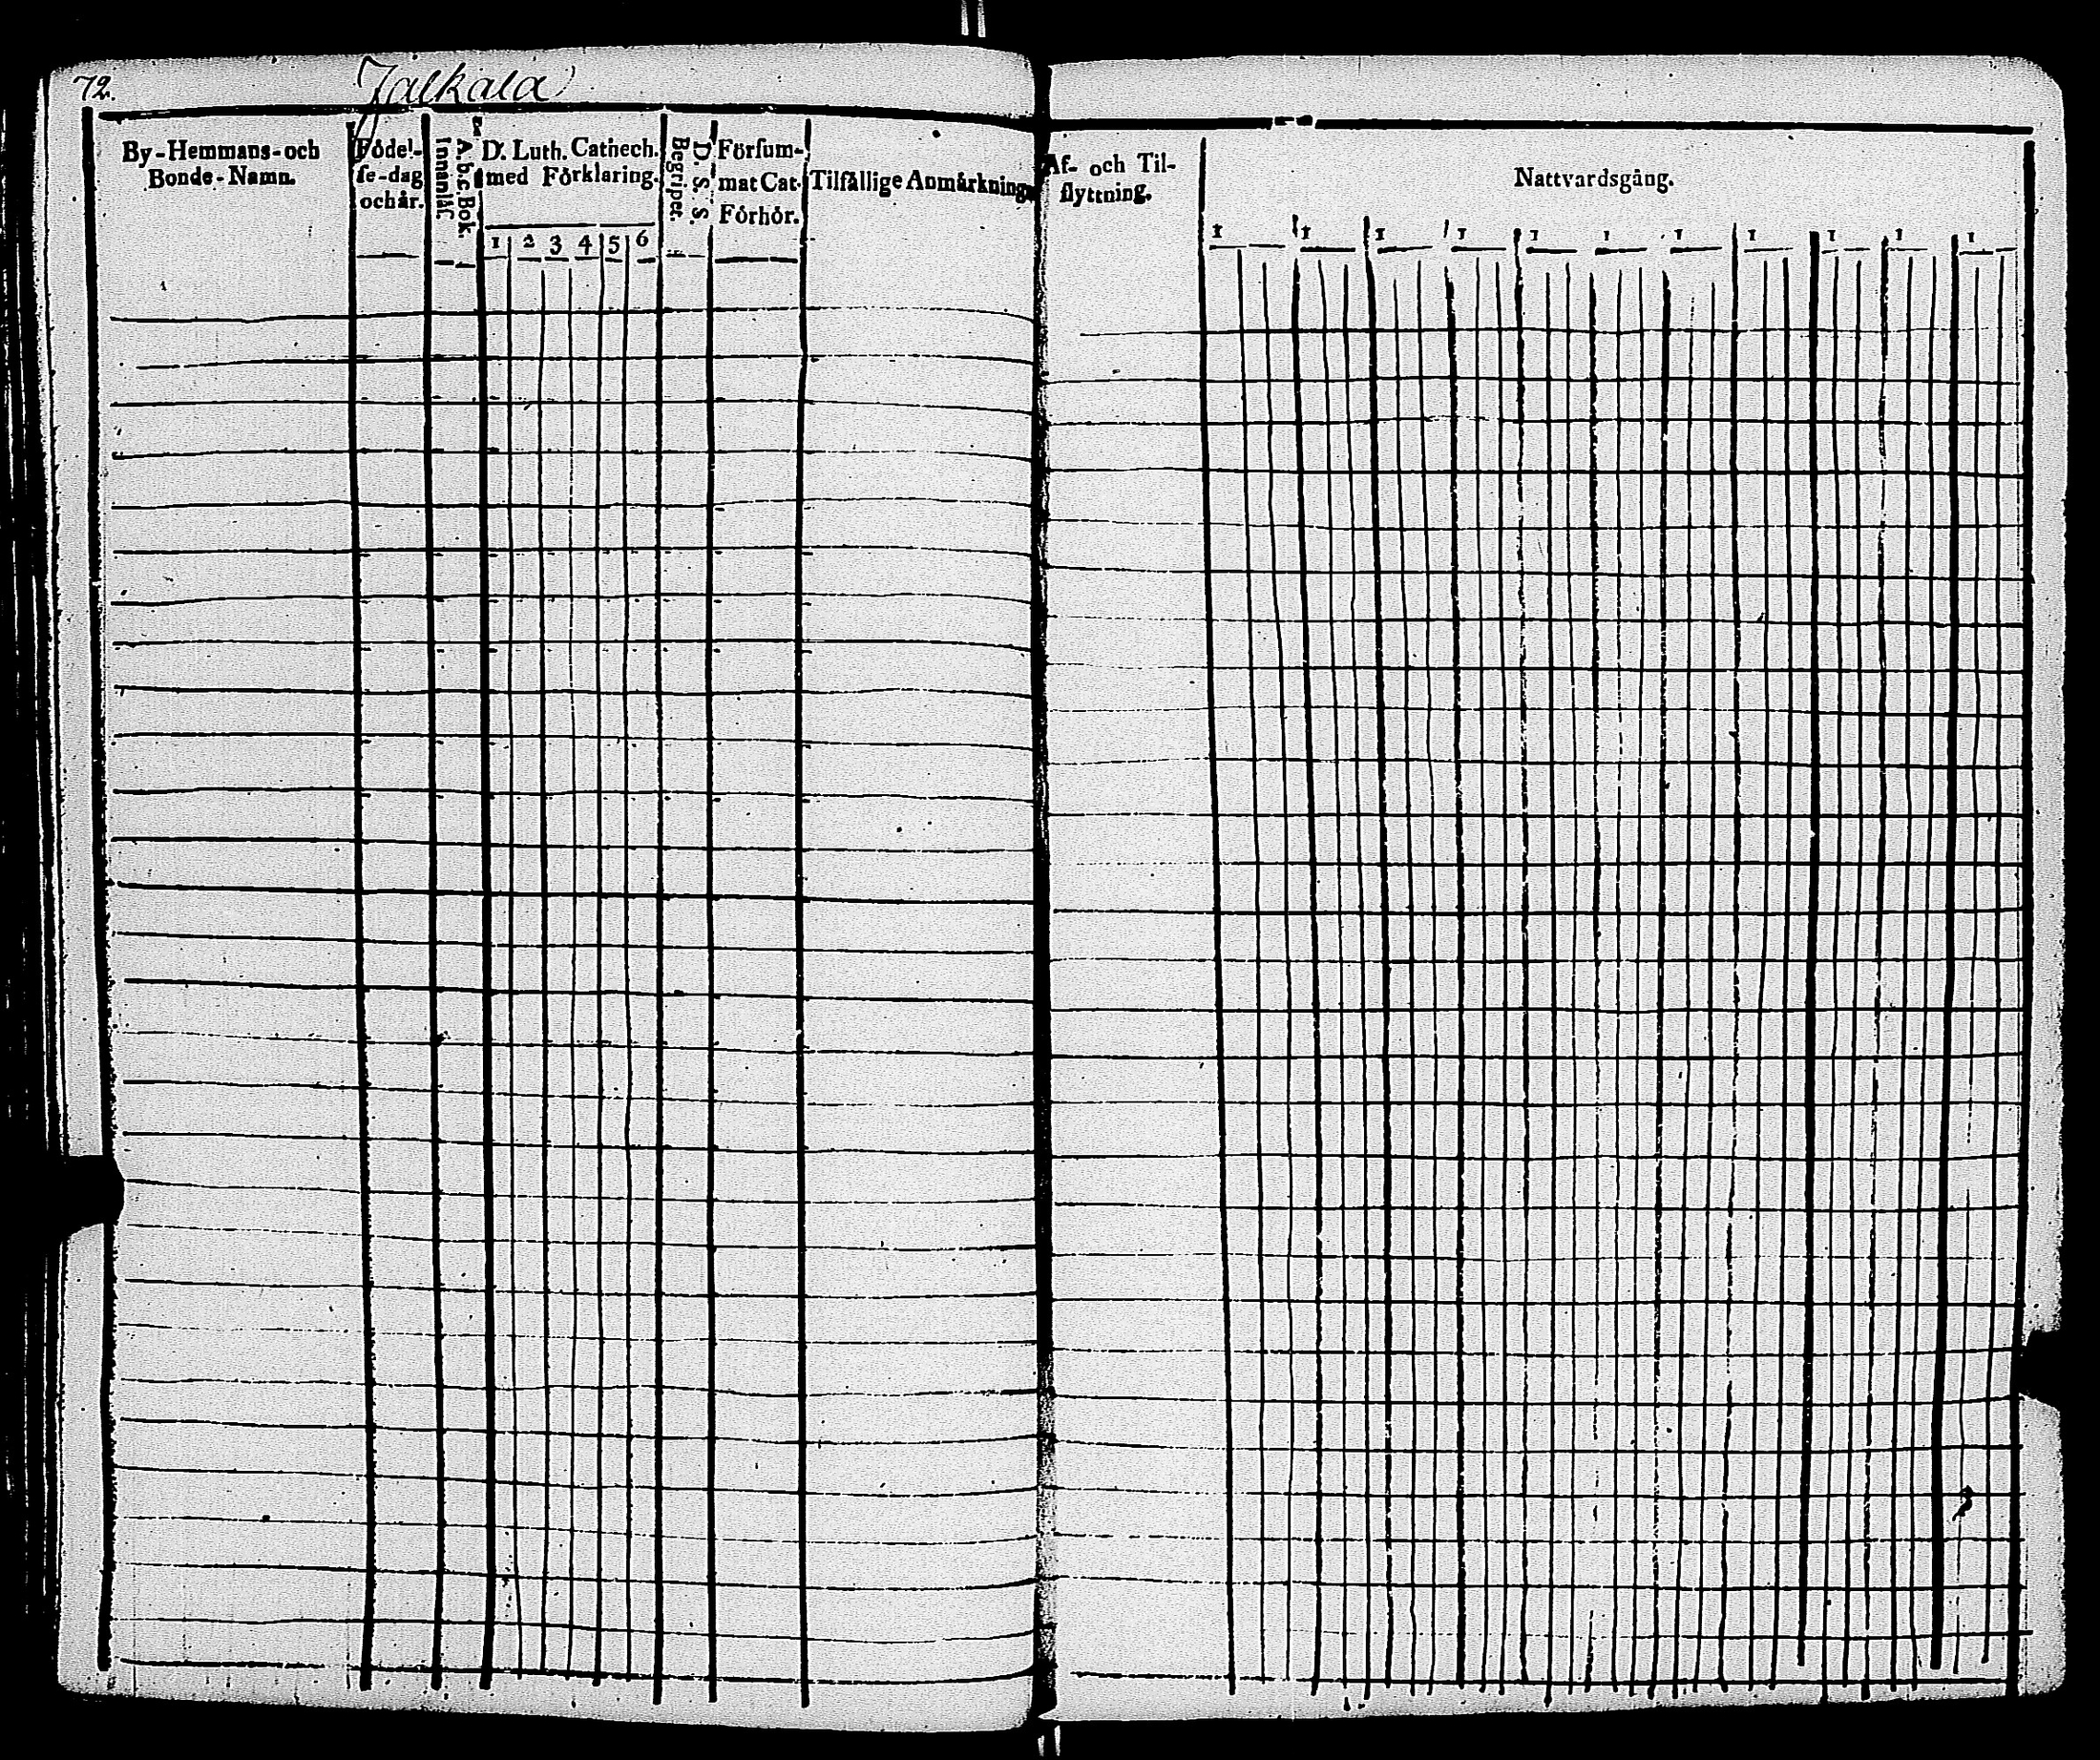 72.
Jalkala
By-Hemmans- och
Bonde-Namn.
Födel-
se-dag
och år.
Innanläſ.
A.b.c. Bok.
Dr. Luth. Cathech.
med Förklaring.
1 2 3 4 5 6
Begripet.
D. S. S.
Förſum-
mat Cat.
Förhör.
Tilfällige Anmärkning.
Af- och Til-
flyttning.
Nattvardsgång.
1 1 1 1 1 1 1 1 1 1 1